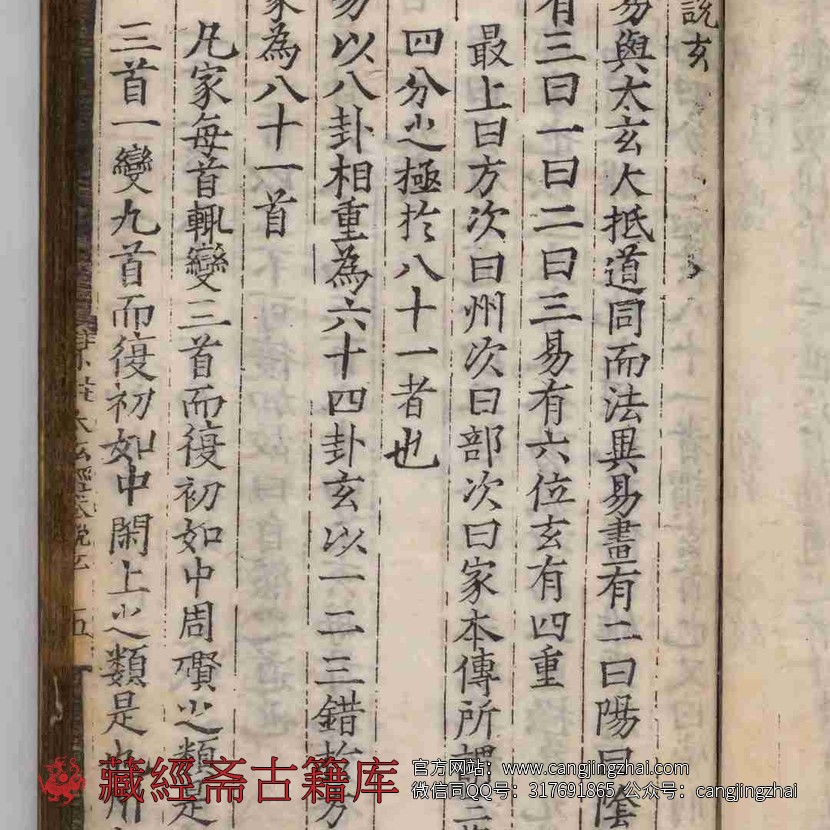 說玄
易與太玄大抵道同而法異易畫有二曰陽曰陰
有三曰一曰二曰三易有六位玄有四重
最上曰方次曰州次曰部次曰家本傳所謂三
四分之極於八十一者也
易以八卦相重為六十四卦玄以一二三錯於方
家為八十一首
凡家每首輒變三首而復初如中周礥之類是
三首一變九首而復初如中閑上之類是也
太玄經 說玄 五
藏經斋古籍库
官方网站：www.cangjingzhai.com
微信同QQ号：317691865 公众号：cangjingzhai